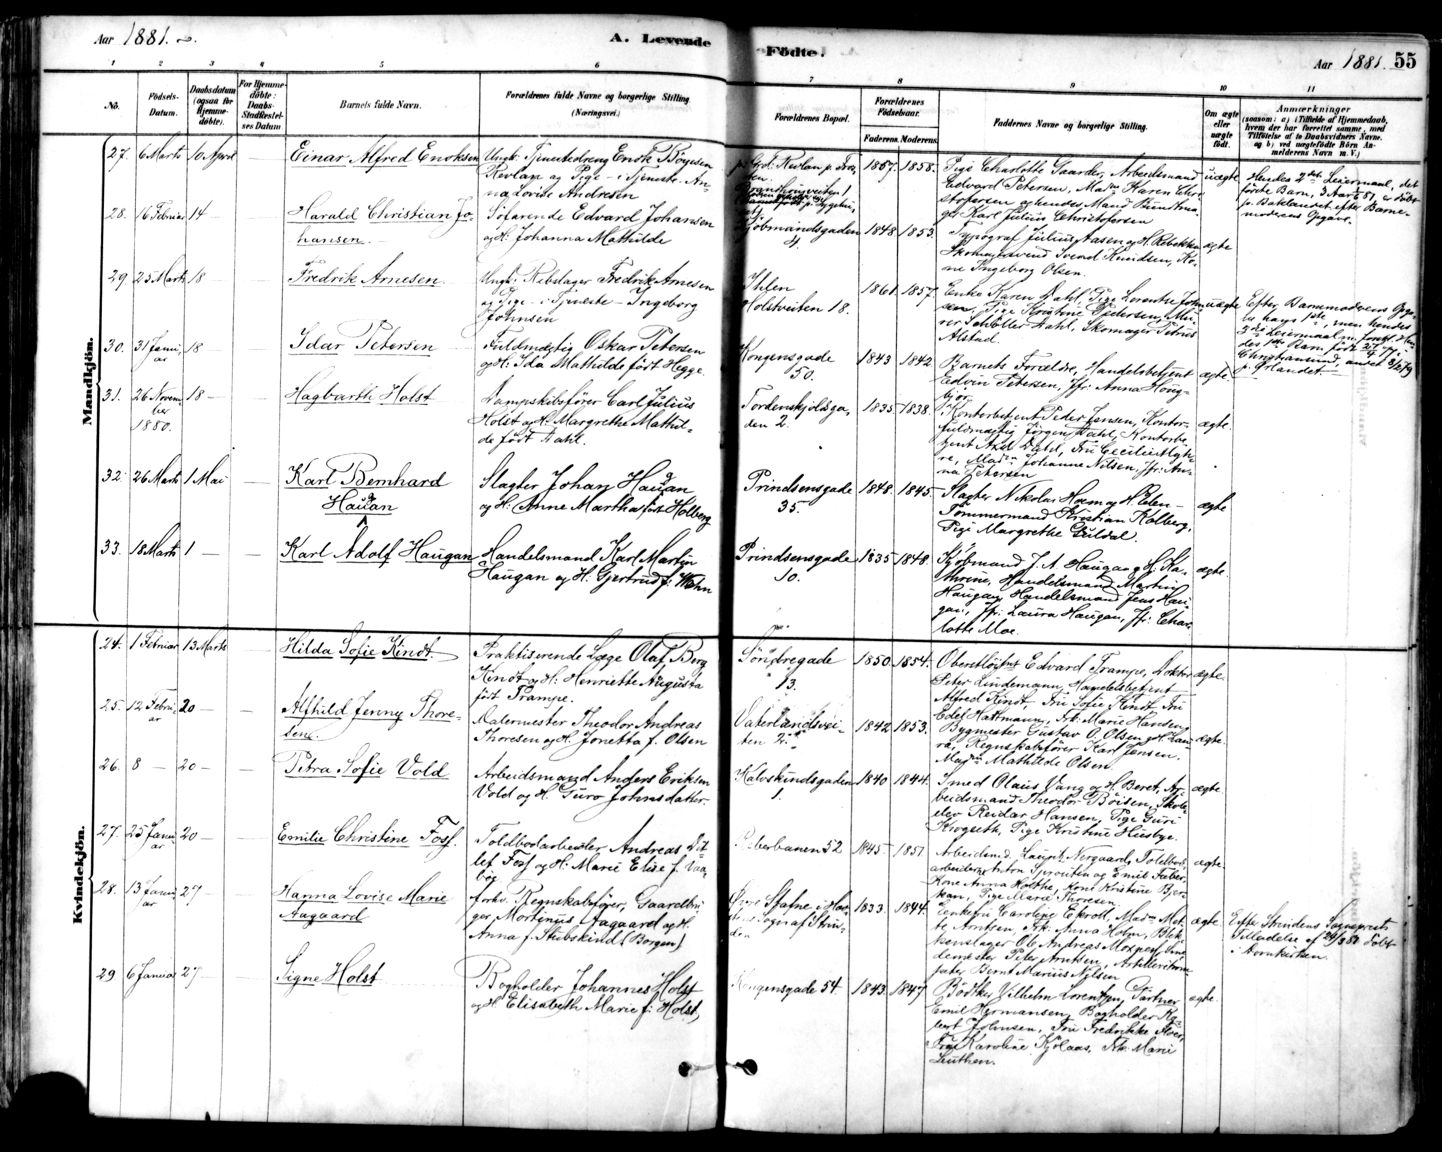 Aar 1881. A. Levende Fødte. Aar 1881. 55
1 2 3 4 5 6 7 8 9 10 11
No. Fødsels-Datum. Daabsdatum (ogsaa for Hjemmedøbte). For Hjemmedøbte: Daabs-Stadfæstelses Datum Barnets fulde Navn. Forældrenes fulde Navne og borgerlige Stilling (Næringsvei.) Forældrenes Bopæl. Forældrenes Fødselsaar. Faderens. Moderens. Faddernes Navne og borgerlige Stilling. Om ægte eller uægte født. Anmærkninger (saasom: a) i Tilfælde af Hjemmedaab, hvem der har forrettet samme, med Tilføielse af to Daabsvidners Navn, og b) ved uægtefødte Børn Anmelderens Navn m. V.)
Mandkjön.
27. 6 Marts 10 April — Einar Alfred Enoksen
Ungk: Tjenestedreng Enok Bøgesen
Kevlan og Pige i Tjeneste An-
na Lovise Andresen
1857. 1858.
Pige Charlotte Gaarder, Arbeidsmand
Edvard Petersen, Madm Karen Chri-
stofersen og hendes Mand
Karl Julius Christofersen
uægte
Hendes 2det Leiermaal, det
første Barn, 3 Aar, er født
p. Baklandet efter Barne-
moderens Opgave.
28. 16 Februar 14 — — Harald Christian Jo-
hansen.
Sölarende Edvard Johansen
og H. Johanna Mathilde
Kjøbmandsgaden
4
1848. 1853.
Typograf Julius Aasen og H. Rebekka
Skomagersvend Svend Knudsen, Ko-
ne Ingeborg Olsen.
ægte
29 25 Marts 18 — — Fredrik Arnesen
Ungk: Rebslager Fredrik Arnesen
og Pige i Tjeneste Ingeborg
Johnsen
Ihlen
Holstveiten 18.
1861. 1857.
Enke Karen Dahl, Pige Lorentse John-
sen, Pige Kristine Pedersen, Mu-
rer Schøller Dahl, Skomager Petrus
Alstad.
uægte
Efter Barnemoderens Opga-
ve hans 1ste, men hendes
2det Leiermaal
Christiansund
p. Ørlandet
30. 31 Janu-
ar 18 — — Idar Petersen
Fuldmægtig Oskar Petersen
og H. Ida Mathilde født Hegge.
Kongensgade
50.
1843 1842
Barnets Forældre, Handelsbetjent
Edvin Petersen, Jfr. Anna Hong-
ægte
31. 26 Novem-
ber
1880. 18 — — Hagbarth Holst
Dampskibsfører Carl Julius
Holst og H. Margrethe Mathil-
de født Dahl.
Tordenskjoldsga-
den 2.
1835 1838.
Kontorbetjent Peder Jensen, Kontor-
fuldmægtig Jørgen Dahl, Kontorbe-
tjent Axel Dahl, Fru Cecilie Lyke
re, Madm Johanne Nilsen, Jfr. An-
na Petersen
ægte.
32. 26 Marts 1 Mai — Karl Bernhard
Haugan
Slagter Johan Haugan
og H. Anne Martha født Holberg
Prindsensgade
35.
1848. 1845.
Slagter Nikolai Hoem og H. Elen
Tømmermand Kristian Kolberg,
Pige Margrethe Guldal.
ægte
33. 18 Marts 1 — — Karl Adolf Haugan
Handelsmand Karl Martin
Haugan og H. Gjertrud f. Wehn
Prindsensgade
10.
1835 1848.
Kjøbmand J. A. Haugan og H. Ka-
thrine, Handelsmand Martin
Haugan, Handelsmand Jens Hau-
gan, Jfr. Laura Haugan, Jfr. Char-
lotte Moe.
ægte
Kvindekjön.
24. 1 Februar 13 Marts — Hilda Sofie Kindt.
Praktiserende Læge Olaf Berg
Kindt og H. Henriette Augusta
født Trampe.
Søndregade
13.
1850 1854.
Oberstløitnt Edvard Trampe, Doktor
Peter Lindemann, Handelsbetjent
Alfred Kindt, Fru Sofie Kindt, Fru
Edel Hartmann, Frk. Marie Hansen,
ægte.
25. 12 Febru-
ar 20 — — Alfhild Jenny Thore-
sene.
Malermester Theodor Andreas
Thoresen og H. Jonetta f. Olsen
Vaterlandsvei-
ten 2.
1842 1853.
Bygmester Gustav O. Olsen og H. Lau-
ra, Regnskabsfører Karl Jensen.
Madm Mathilde Olsen.
ægte.
26. 8 — 20 — — Petra Sofie Vold
Arbeidsmand Anders Eriksen
Vold og H. Guro Johnsdatter
Kalvskindsgaden
1.
1840 1844.
Smed Olaus Vang og H. Beret, Ar-
beidsmand Theodor Böisen, Skole-
elev Reidar Hansen, Pige Guri
Krogseth, Pige Kristine Huseby.
ægte.
27. 25 Janu-
ar 20 — — Emilie Christine Foss.
Toldbodarbeider Andreas Dit-
lef Foss og H. Marie Elise f. Vaa-
bøg
Reberbanen 52
1845 1851
Arbeidsmd. Laurits Nergaard, Toldbod-
arbeiderne Sprouten og Emil Faber
Kone Anna Holthe, Kone Kristine
Pige Marie Thoresen.
ægte.
28. 13 Janu-
ar 27 — — Hanna Lovise Marie
Aagaard
Forhv. Regnskabsfører, Gaardbru-
ger Mortinus Aagaard og H.
Anna f. Stubskind (Borgen)
Øvre Stafne
Sogn af Strin-
den
1833. 1844.
Enkefru Caroline Ekroll, Madm Met-
te Arntsen, Frk. Anna Holm, Blik-
kenslager Ole Andreas Moxnes,
Peter Arntsen, Artilleriform
Bernt Marius Nilsen
ægte
Efter Strindens Sogneprests
Tilladelse af 24/3 81 døbt
i Domkirken.
29 6 Januar 27 — — Signe Holst
Bogholder Johannes Holst
og H. Elisabeth Marie f: Holst,
Kongensgade 54.
1843. 1847
Bödtker Vilhelm Lorentzen, Gartner
Emil Hermansen, Bogholder Ro-
bert Johnsen, Fru Fredrikke
Frøk Karoline Kjelaas, Frk. Marie
Leuthen.
ægte.